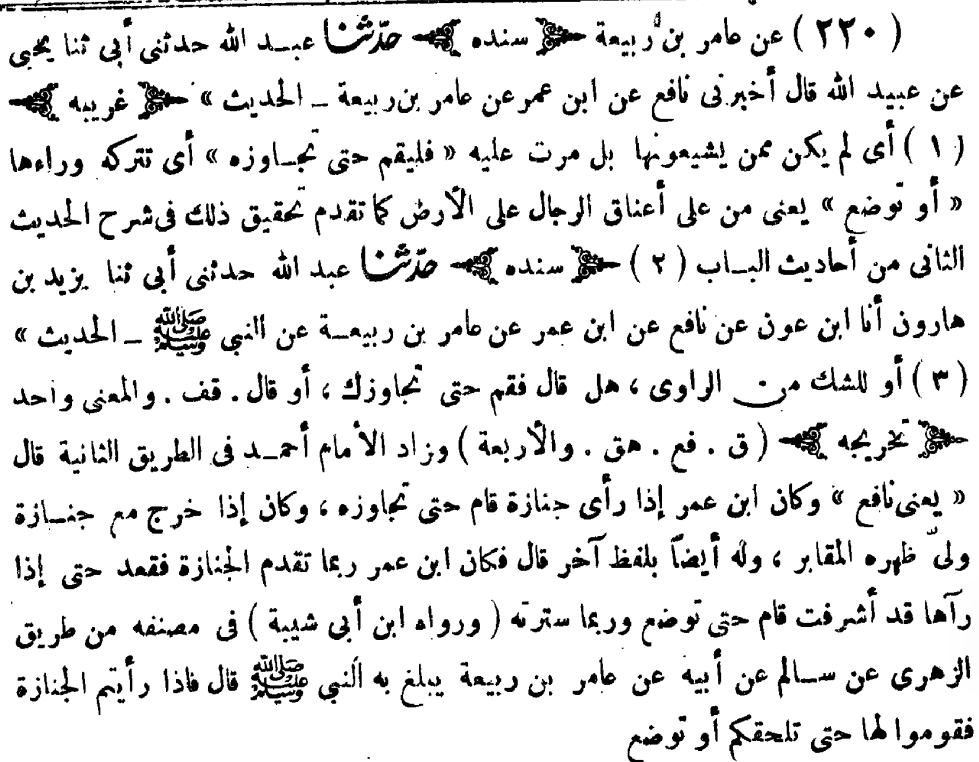 ( ٢٢٠ ) عن عامر بن ربيعة ﴿ سنده ﴾ حدّثنا عبـد الله حدثنى أبى ثنا يحيى
عن عبيد الله قال أخبرنى نافع عن ابن عمر عن عامر بن ربيعة ـ الحديث » ﴿ غريبه ﴾
( ١ ) أى لم يكن ممن يشيعونها بل مرت عليه « فليقم حتى تجـاوزه » أى تتركه وراءها
« أو توضع » يعنى من على أعناق الرجال على الأرض كما تقدم تحقيق ذلك فى شرح الحديث
الثانى من أحاديث البـاب ( ٢ ) ﴿ سنده ﴾ حدّثنا عبد الله حدثنى أبى ثنا يزيد بن
هارون أنا ابن عون عن نافع عن ابن عمر عن عامر بن ربيعـة عن النبى ﷺ ـ الحديث »
( ٣ ) أو للشك من الراوى ، هل قال فقم حتى تجاوزك ، أو قال . قف . والمعنى واحد
﴿ تخريجه ﴾ ( ق . فع . هق . والأربعة ) وزاد الأمام أحمـد فى الطريق الثانية قال
« يعنى نافع » وكان ابن عمر إذا رأى جنازة قام حتى تجاوزه ، وكان إذا خرج مع جنـازة
ولىّ ظهره المقابر ، وله أيضاً بلفظ آخر قال فكان ابن عمر ربما تقدم الجنازة فقعد حتى إذا
رآها قد أشرفت قام حتى توضع وربما سترته ( ورواه ابن أبى شيبة ) فى مصنفه من طريق
الزهرى عن سـالم عن أبيه عن عامر بن ربيعة يبلغ به النبى ﷺ قال فاذا رأيتم الجنازة
فقوموا لها حتى تلحقكم أو توضع